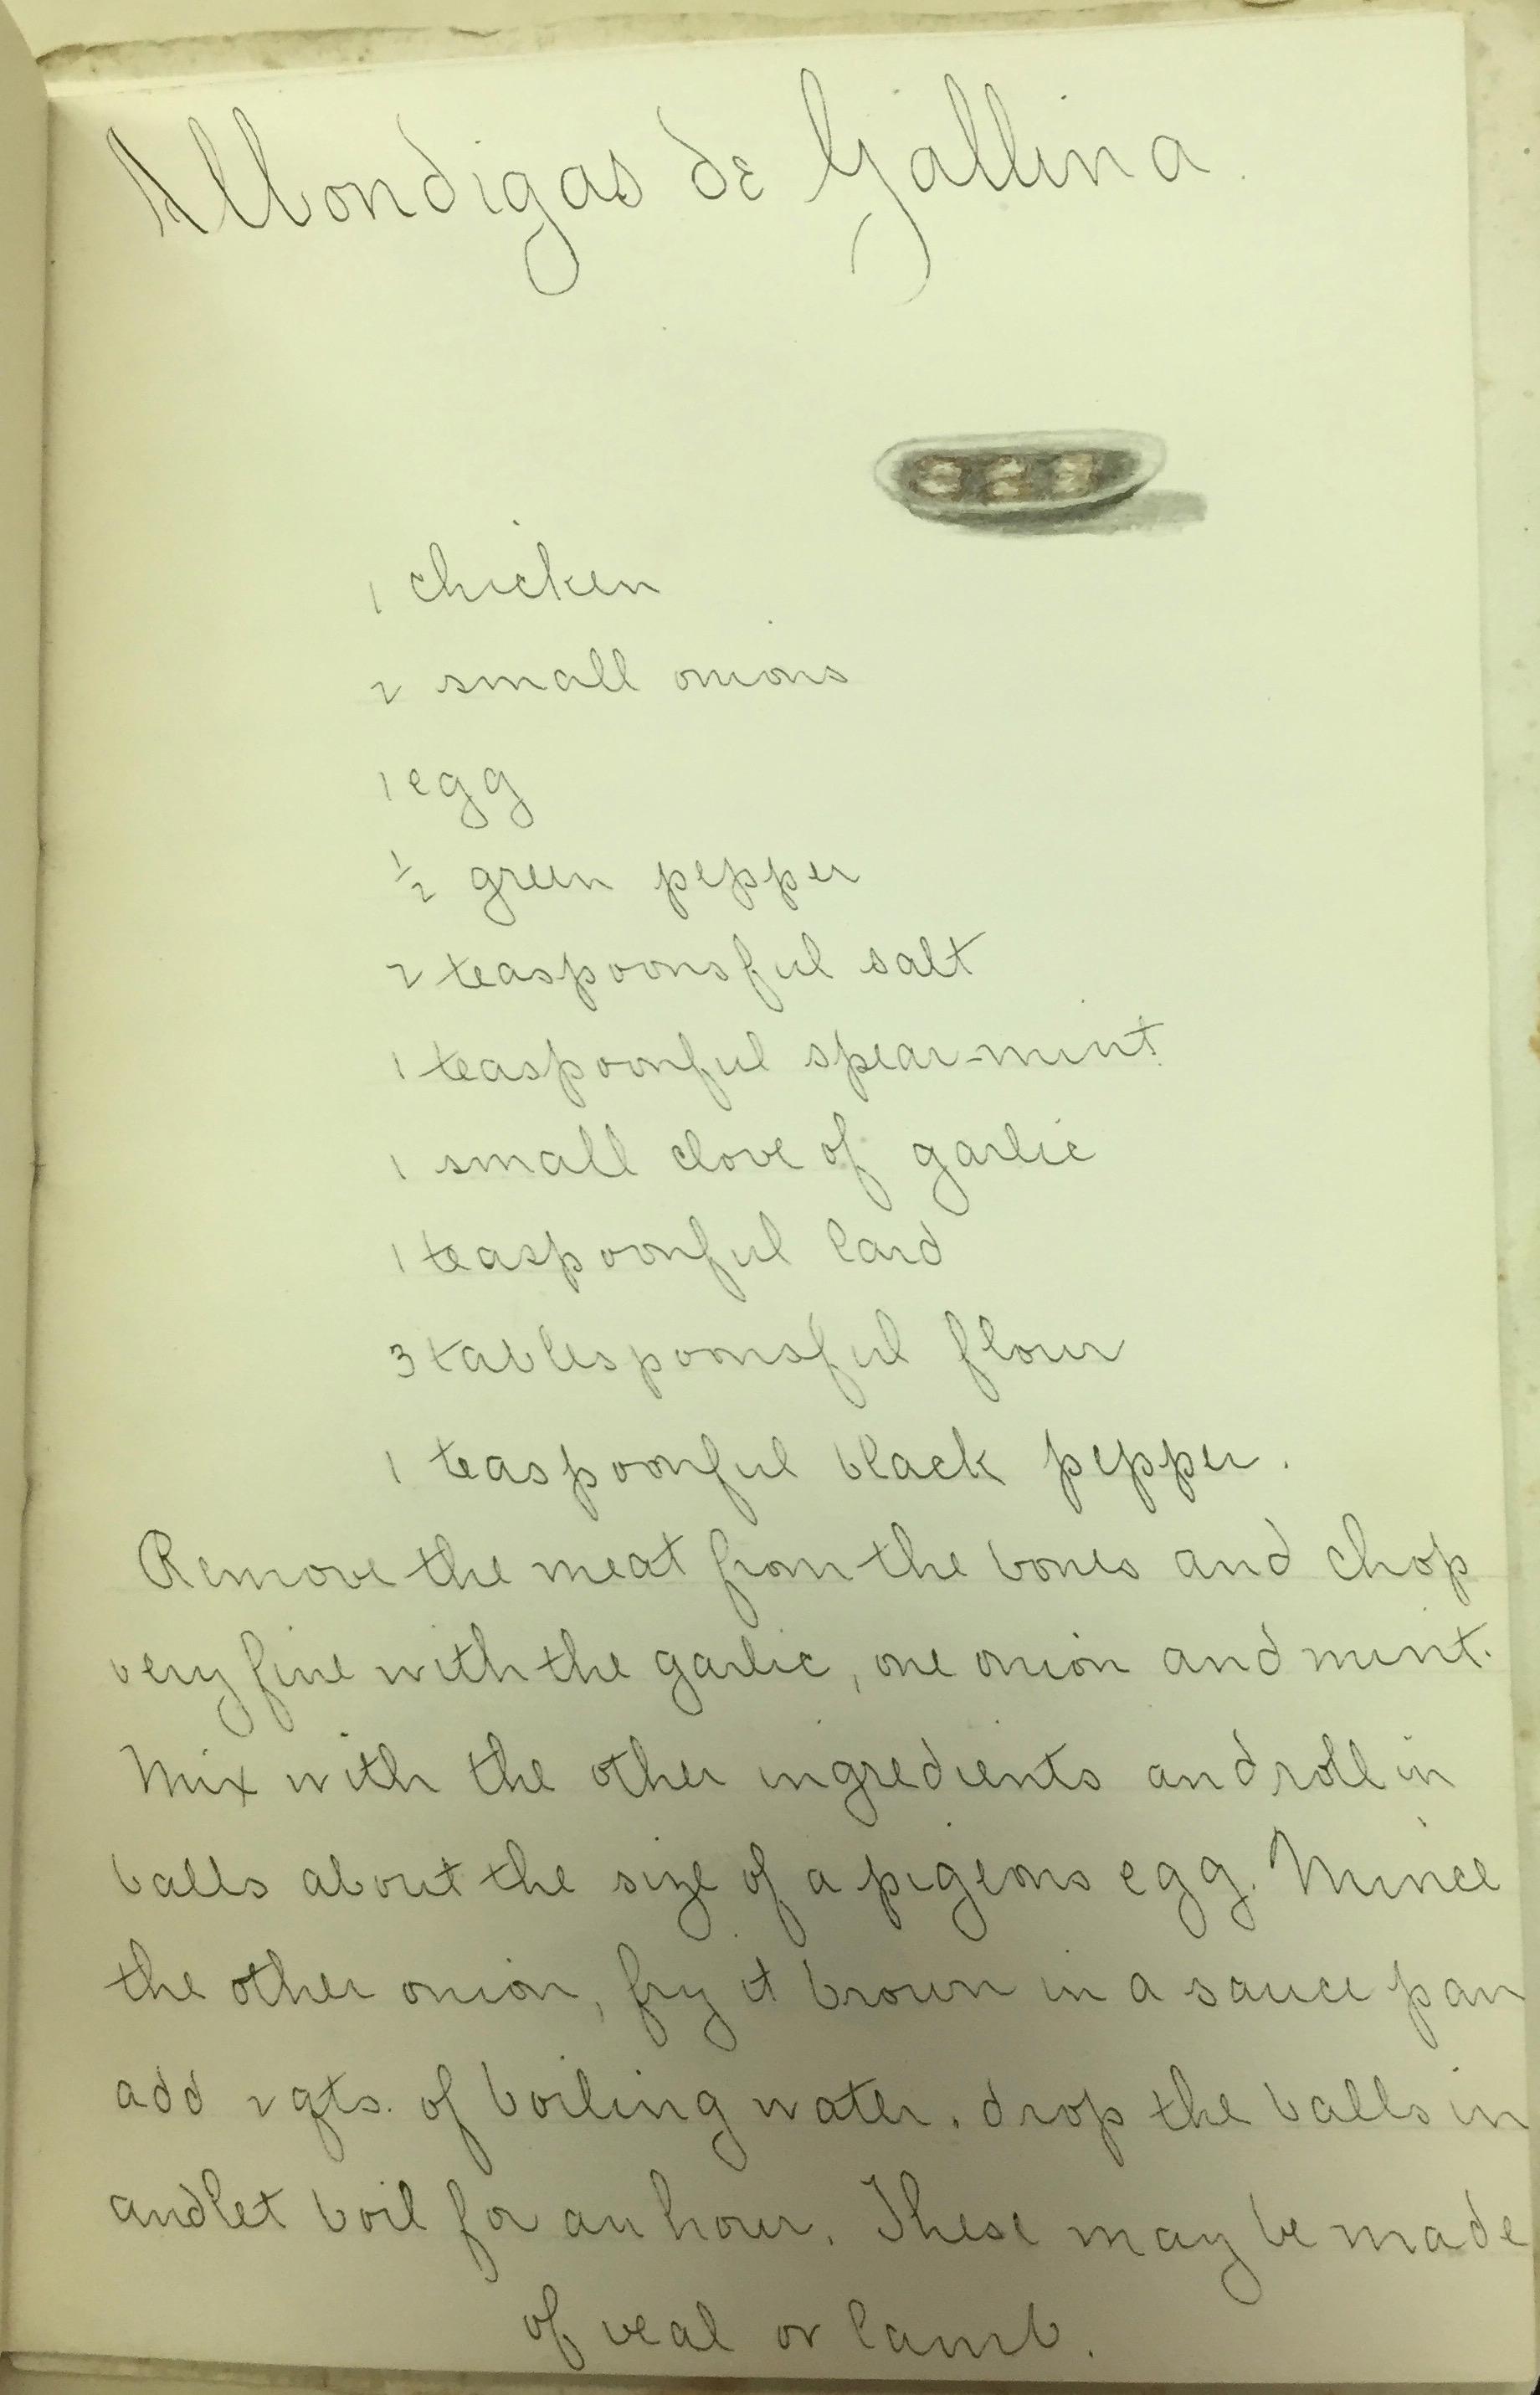 Albondigas de Gallina.
1 chicken
2 small onions
1 egg
½ green pepper
2 teaspoonsful salt
1 teaspoonful spear-mint
1 small clove of garlic
1 teaspoonful lard
3 tablespoonsful flour
1 teaspoonful black pepper.
Remove the meat from the bones and chop
very fine with the garlic, one onion and mint.
Mix with the other ingredients and roll in
balls about the size of a pigeons egg. Mince
the other onion, fry it brown in a sauce pan
add 2 qts. of boiling water. drop the balls in
and let boil for an hour. These may be made
of veal or lamb.